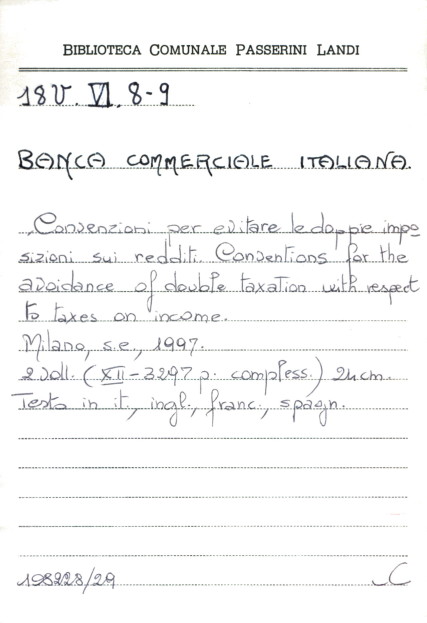 BIBLIOTECA COMUNALE PASSERINI LANDI
18V. VI. 8-9
BANCA COMMERCIALE ITALIANA.
Convenzioni per evitare le doppie impo
sizioni sui redditi. Conventions for the
avoidance of double taxation with respect
to taxes on income.
Milano, s.e., 1997.
2 voll. (XII-3297 p. compless.) 24 cm.
Testo in it., ingl., franc., spagn.
198228/29
C